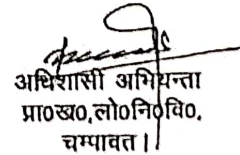 अधिशासी अभियन्ता
प्रा०ख०,लो०नि०वि०,
चम्पावत।